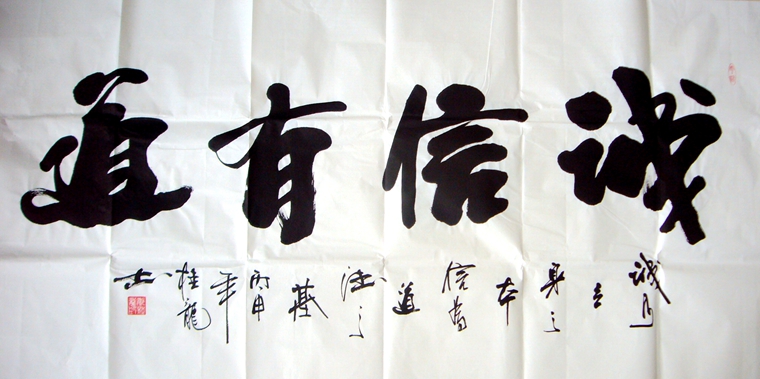 诚信有道
诚乃立身之本信為道德之基丙申年桂龍书